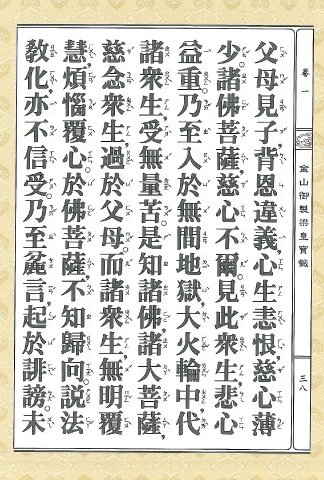 卷一
金山御製梁皇寶懺
三八
父母見子，背恩違義，心生恚恨，慈心薄
少。諸佛菩薩，慈心不爾，見此眾生，悲心
益重。乃至入於無間地獄，大火輪中，代
諸眾生，受無量苦。是知諸佛，諸大菩薩，
慈念眾生，過於父母。而諸眾生，無明覆
慧，煩惱覆心。於佛菩薩，不知歸向，說法
教化，亦不信受。乃至麤言，起於誹謗。未